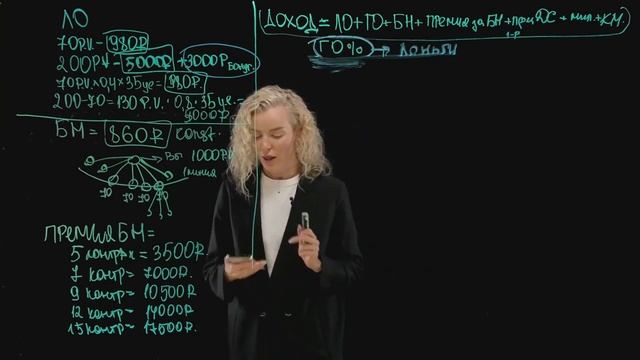 ЛО
70P.V. - 980₽
200P.V - 5000₽ +3000₽ Бонус.
70P.V. × 0,4 × 35 у.е = 980₽
200-70=130P.V. · 0,8 · 35у.е. =
БМ = 860₽ const.
Вы 1000₽
1 линия
10 10 10 10
ПРЕМИЯ БМ =
5 контрак = 3500₽.
7 контр = 7000₽.
9 контр = 10500₽
12 контр = 14000₽
15 контр = 17500₽.
ДОХОД = ЛО + ГО + БН + ПРЕМИЯ ЗА БН + при ДС + мил. + КМ.
ГО% → деньги